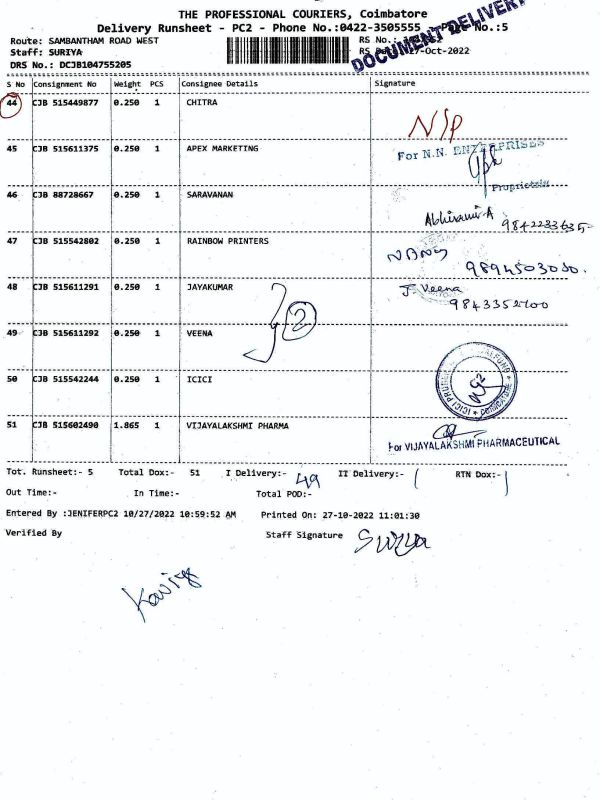 THE PROFESSIONAL COURIERS, Coimbatore
Delivery Runsheet - PC2 - Phone No.:0422-3505555 - Page No.:5
DOCUMENT DELIVERY
Route: SAMBANTHAM ROAD WEST RS No.:
Staff: SURIYA RS Date: 27-Oct-2022
DRS No.: DCJB104755205
S No Consignment No Weight PCS Consignee Details Signature
44 CJB 515449877 0.250 1 CHITRA
NSP
45 CJB 515611375 0.250 1 APEX MARKETING For N.N. ENTERPRISES
Proprietrix
46 CJB 88728667 0.250 1 SARAVANAN
Abhirami-A 9842233635
47 CJB 515542802 0.250 1 RAINBOW PRINTERS
9894503030.
48 CJB 515611291 0.250 1 JAYAKUMAR J. Veena
9843352700
2
49 CJB 515611292 0.250 1 VEENA
50 CJB 515542244 0.250 1 ICICI
51 CJB 515602490 1.865 1 VIJAYALAKSHMI PHARMA
For VIJAYALAKSHMI PHARMACEUTICAL
Tot. Runsheet:- 5 Total Dox:- 51 I Delivery:- 49 II Delivery:- 1 RTN Dox:- 1
Out Time:- In Time:- Total POD:-
Entered By :JENIFERPC2 10/27/2022 10:59:52 AM Printed On: 27-10-2022 11:01:30
Verified By Staff Signature Suriya